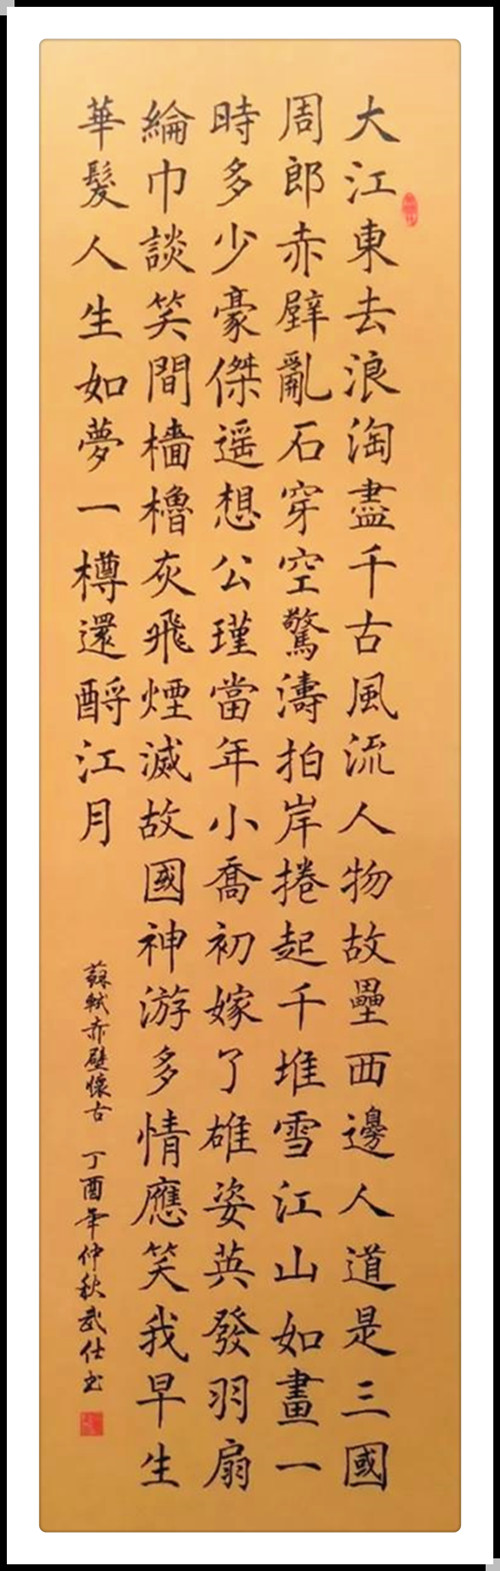 大江東去浪淘盡千古風流人物故壘西邊人道是三國
周郎赤壁亂石穿空驚濤拍岸捲起千堆雪江山如畫一
時多少豪傑遥想公瑾當年小喬初嫁了雄姿英發羽扇
綸巾談笑間檣櫓灰飛煙滅故國神游多情應笑我早生
華髮人生如夢一樽還酹江月
蘇軾赤壁懷古 丁酉年仲秋武仕书